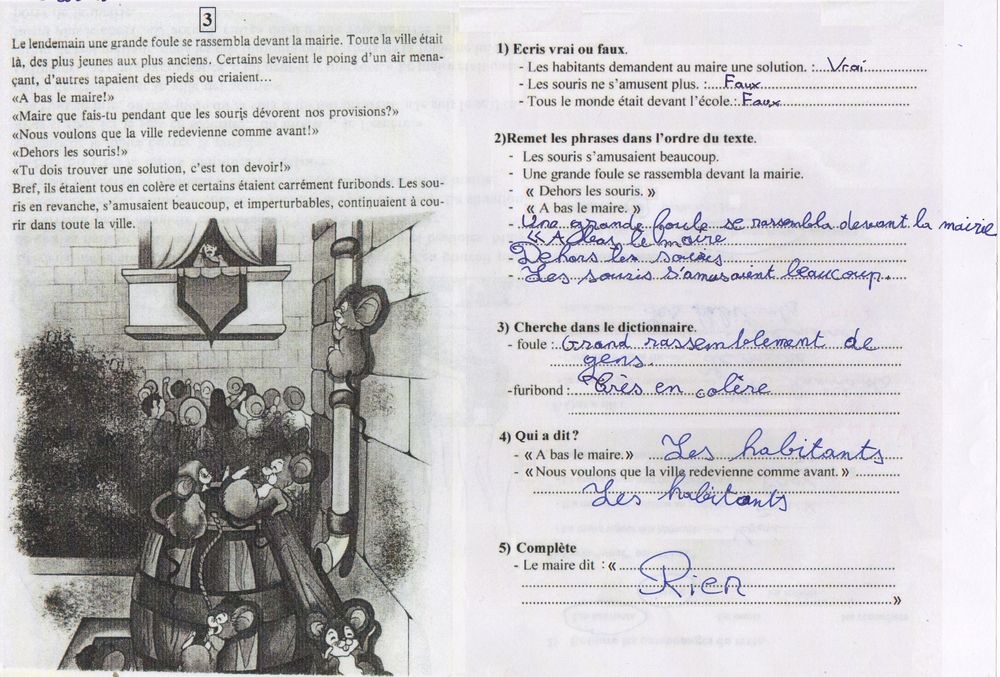 3
Le lendemain une grande foule se rassembla devant la mairie. Toute la ville était
là, des plus jeunes aux plus anciens. Certains levaient le poing d'un air mena-
çant, d'autres tapaient des pieds ou criaient...
«A bas le maire!»
«Maire que fais-tu pendant que les souris dévorent nos provisions?»
«Nous voulons que la ville redevienne comme avant!»
«Dehors les souris!»
«Tu dois trouver une solution, c'est ton devoir!»
Bref, ils étaient tous en colère et certains étaient carrément furibonds. Les sou-
ris en revanche, s'amusaient beaucoup, et imperturbables, continuaient à cou-
rir dans toute la ville.
1) Ecris vrai ou faux.
- Les habitants demandent au maire une solution. : Vrai
- Les souris ne s'amusent plus. : Faux
- Tous le monde était devant l'école. : Faux
2)Remet les phrases dans l'ordre du texte.
- Les souris s'amusaient beaucoup.
- Une grande foule se rassembla devant la mairie.
- « Dehors les souris. »
- « A bas le maire. »
- Une grande foule se rassembla devant la mairie
- « A bas le maire
- Dehors les souris
- Les souris s'amusaient beaucoup.
3) Cherche dans le dictionnaire.
- foule : Grand rassemblement de
gens.
-furibond : Très en colère
4) Qui a dit?
- « A bas le maire.» Les habitants
- « Nous voulons que la ville redevienne comme avant. »
Les habitants
5) Complète
- Le maire dit : «
Rien
»